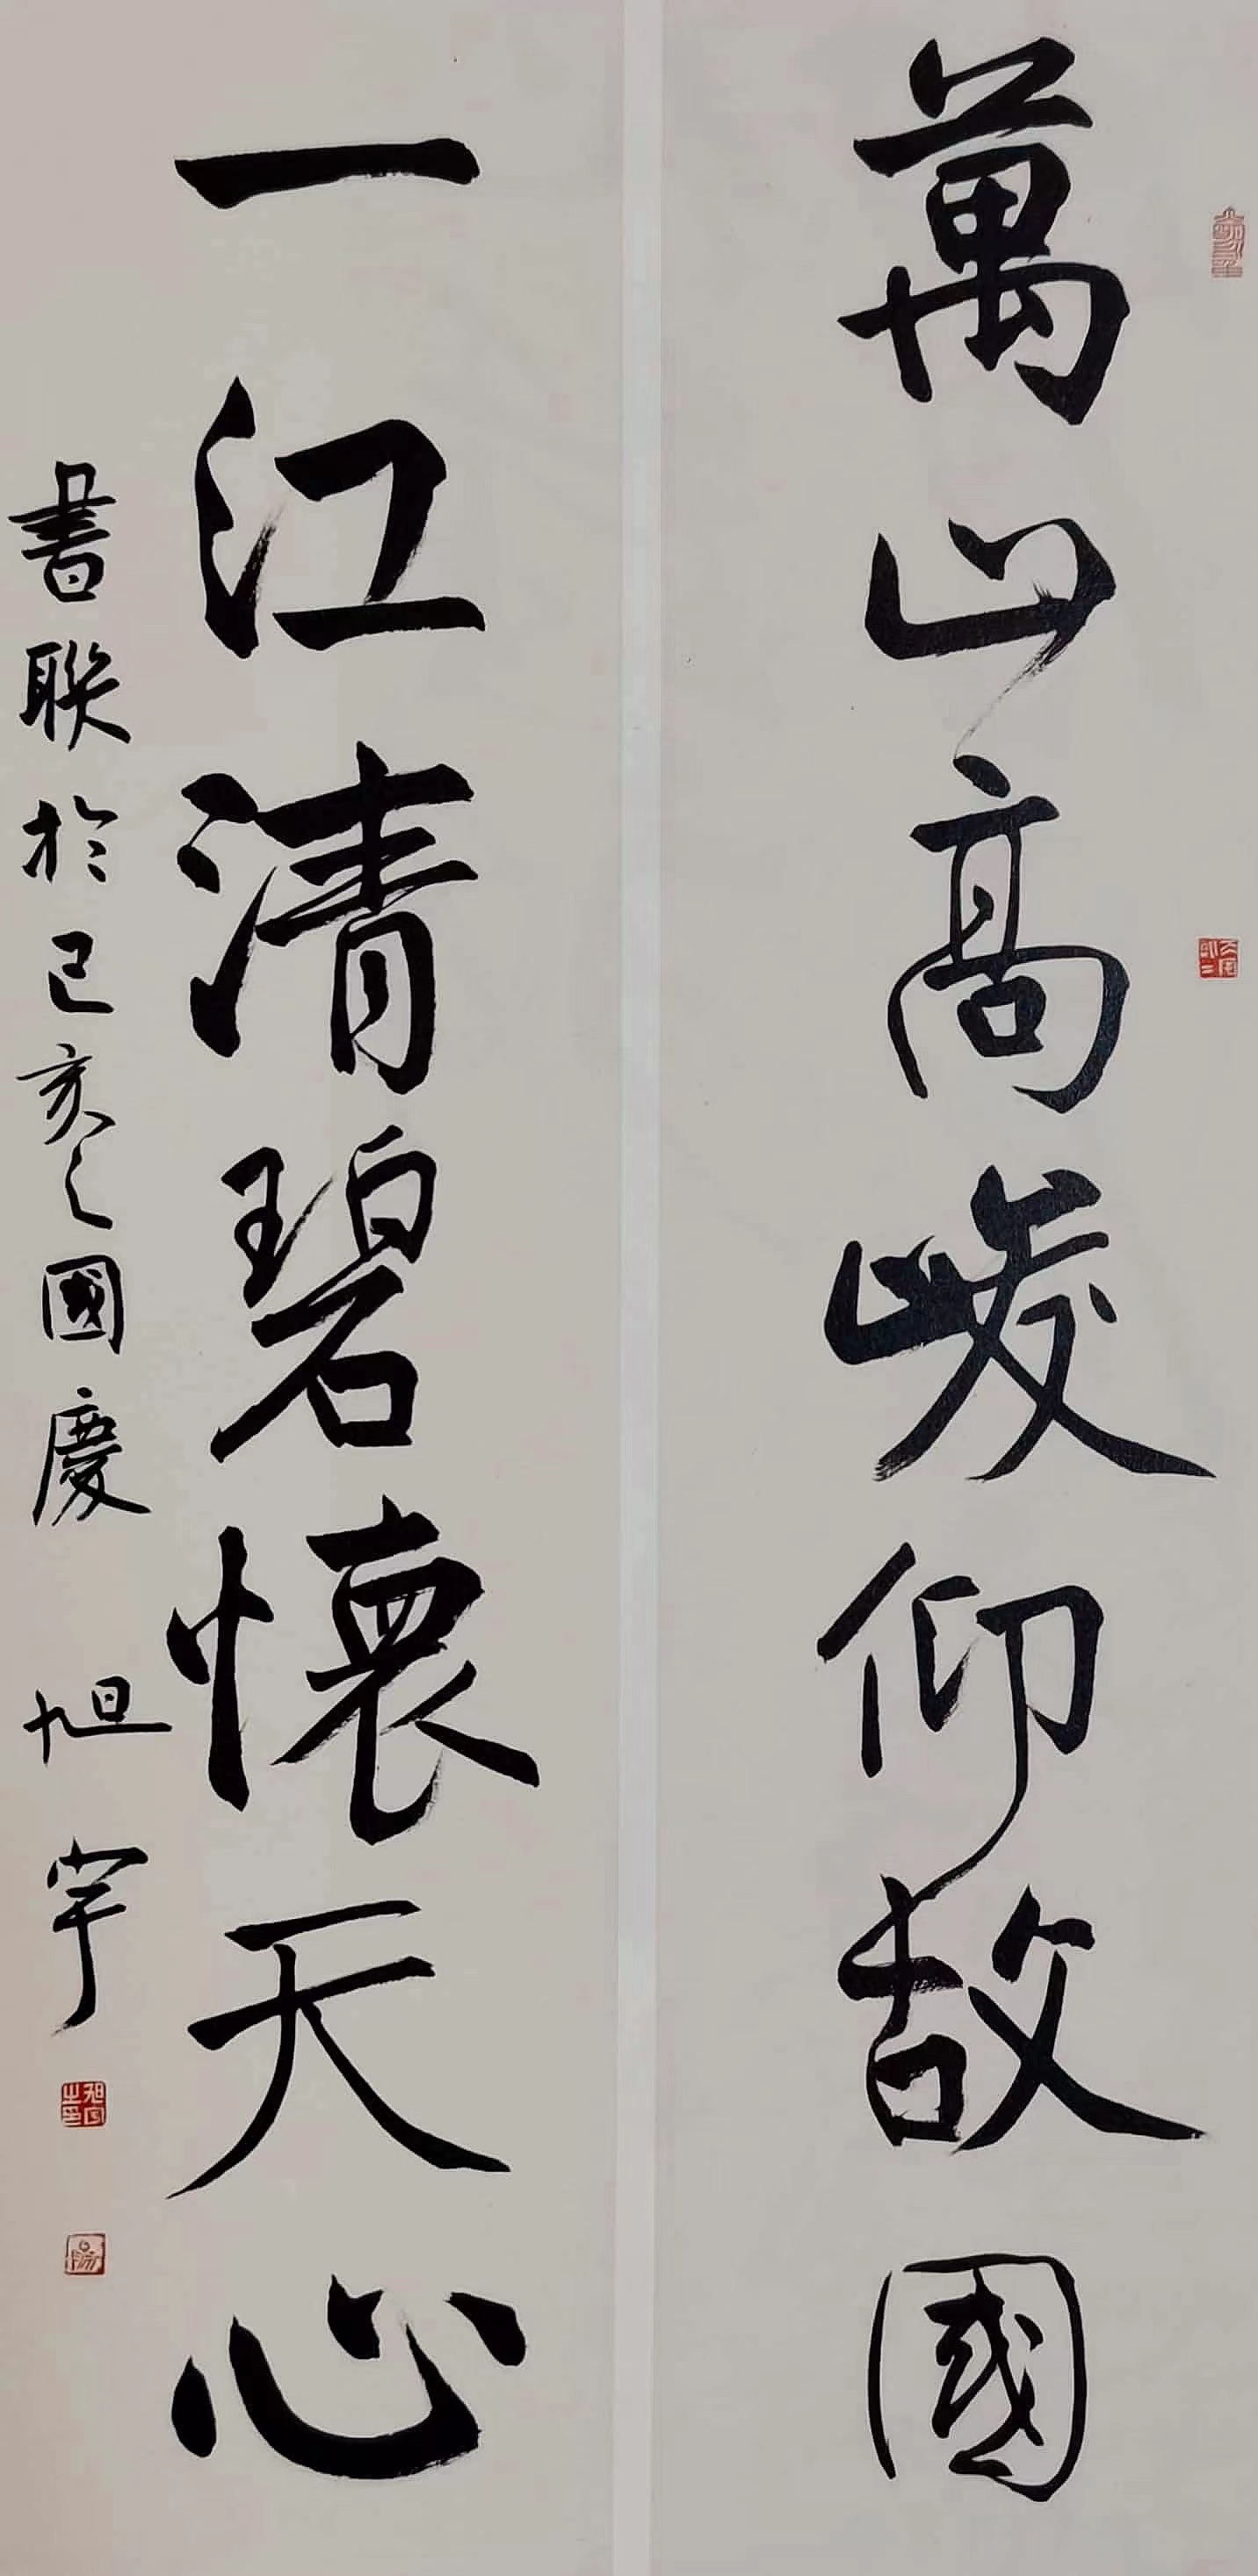 萬山高峻仰故國
一江清碧懷天心
書聯於己亥之國慶 旭宇